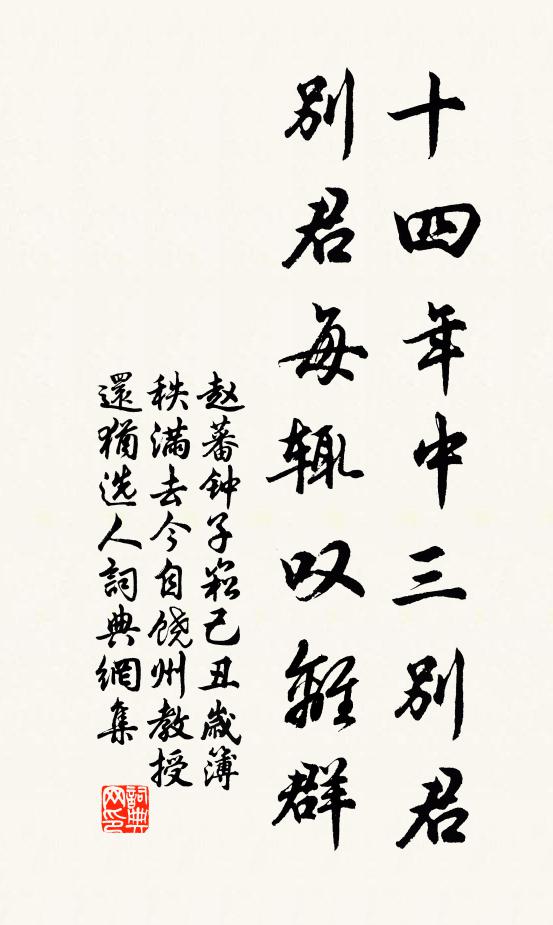 十四年中三别君
别君每辄叹離群
赵蕃钟子崧己丑歲簿
秩满去今自饶州教授
還猶选人詞典網集
詞典网印